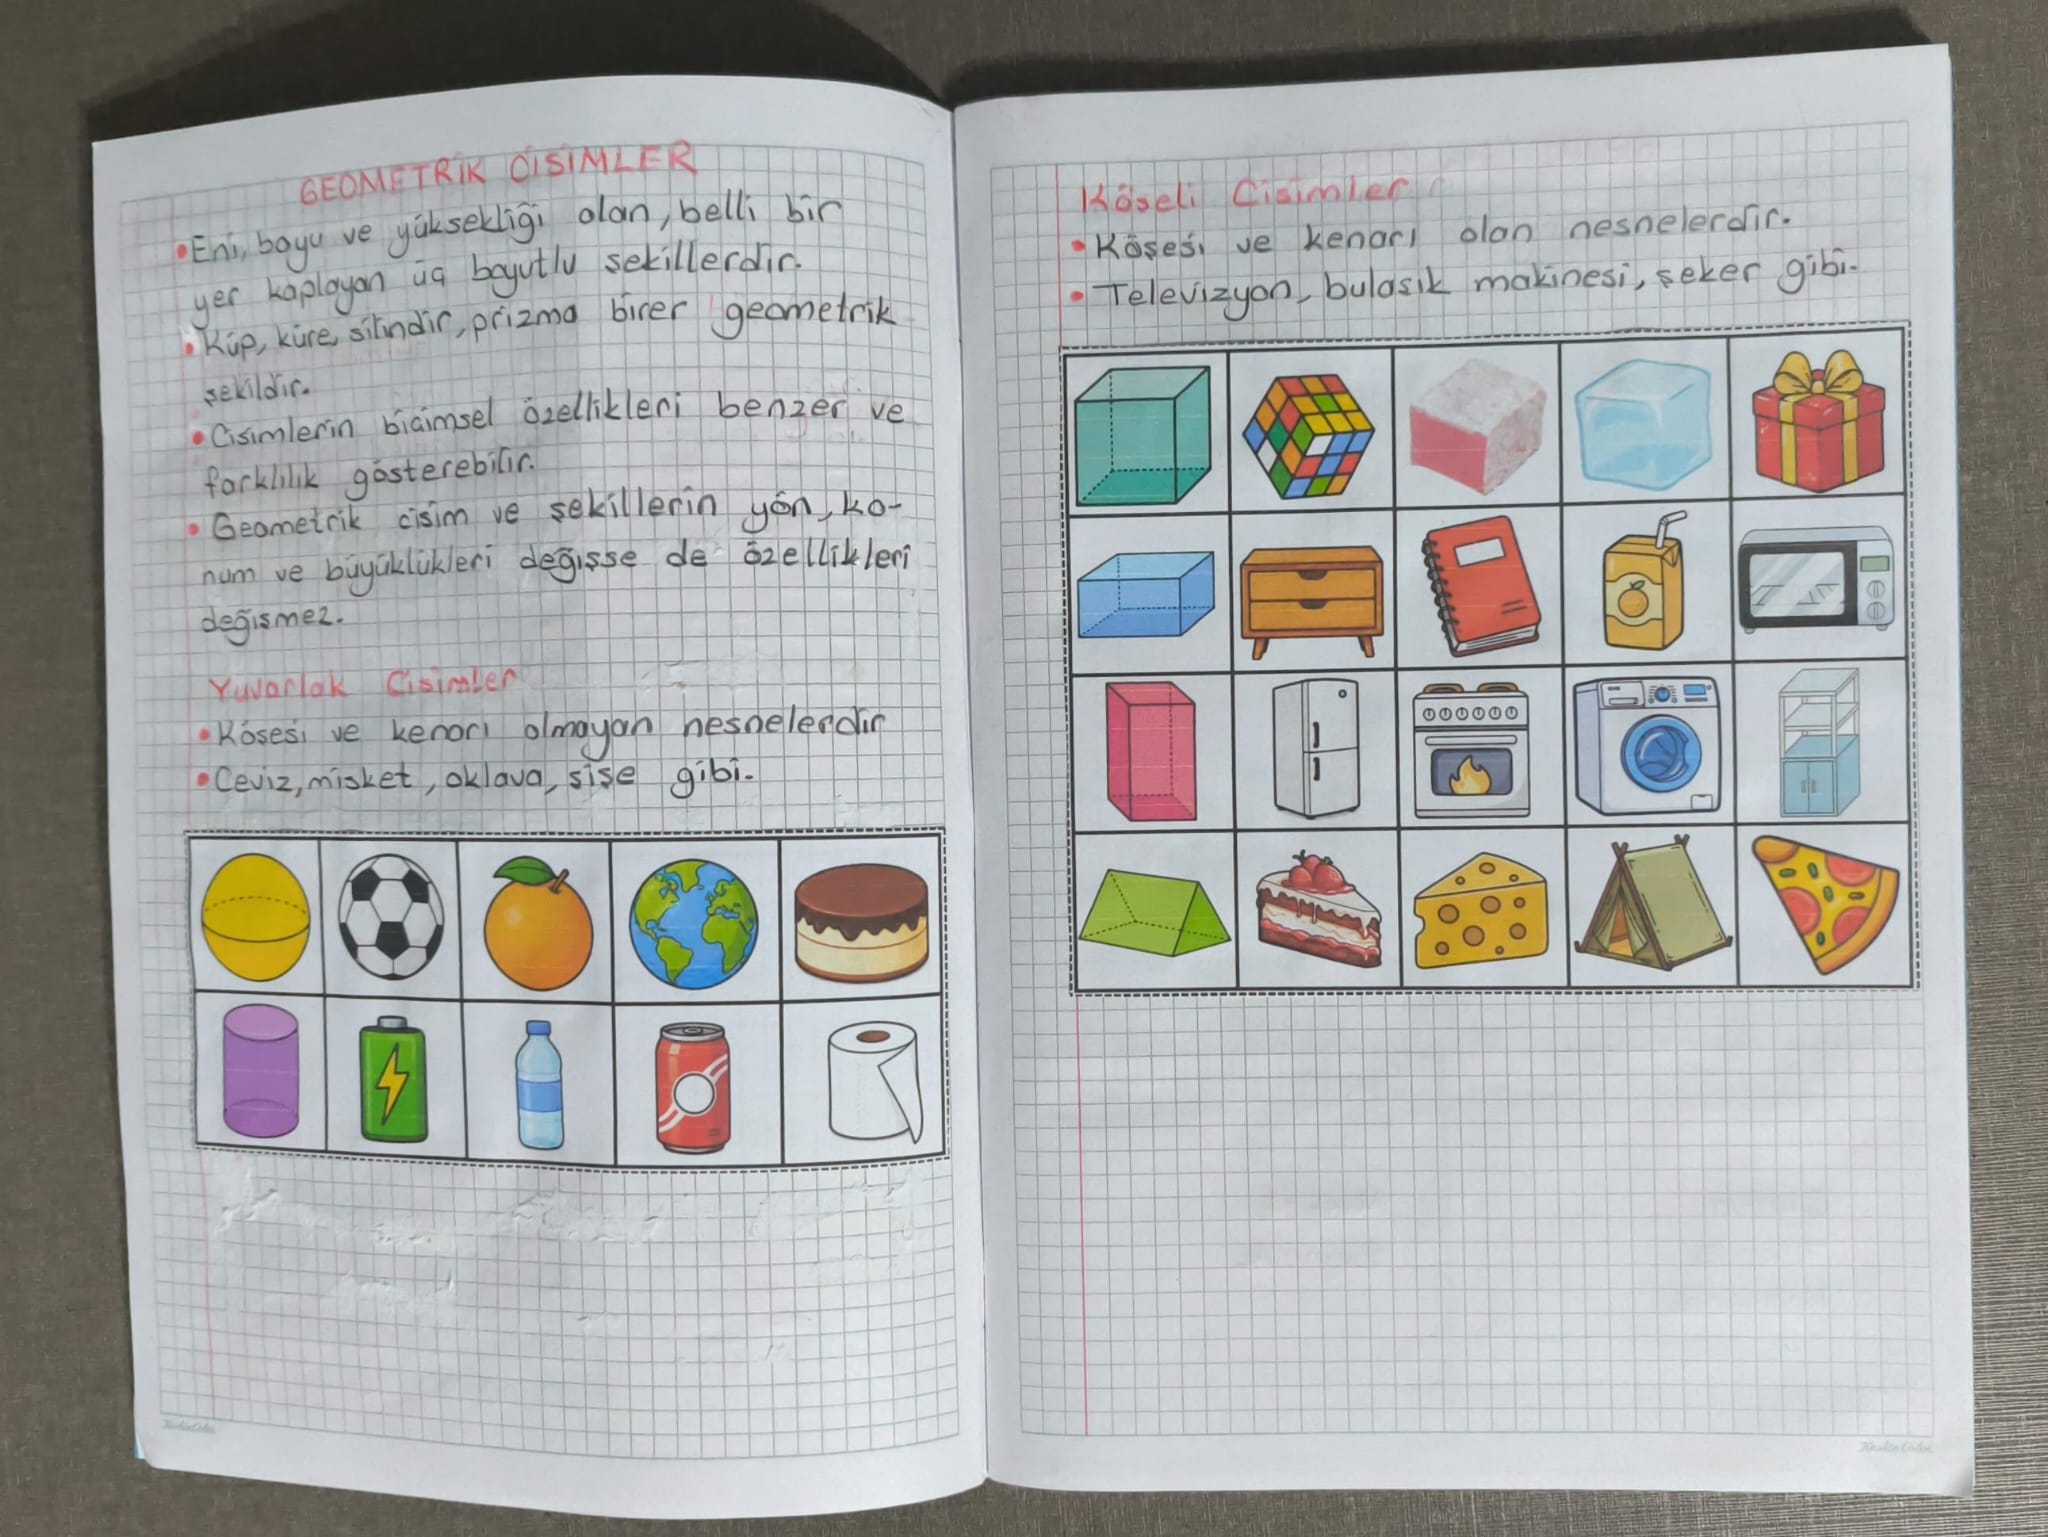 GEOMETRİK CİSİMLER
• Eni, boyu ve yüksekliği olan, belli bir
yer kaplayan üç boyutlu şekillerdir.
• Küp, küre, silindir, prizma birer geometrik
şekildir.
• Cisimlerin biçimsel özellikleri benzer ve
farklılık gösterebilir.
• Geometrik cisim ve şekillerin yön, ko-
num ve büyüklükleri değişse de özellikleri
değişmez.
Yuvarlak Cisimler
• Köşesi ve kenarı olmayan nesnelerdir
• Ceviz, misket, oklava, şişe gibi.
Köşeli Cisimler
• Köşesi ve kenarı olan nesnelerdir.
• Televizyon, bulaşık makinesi, şeker gibi.